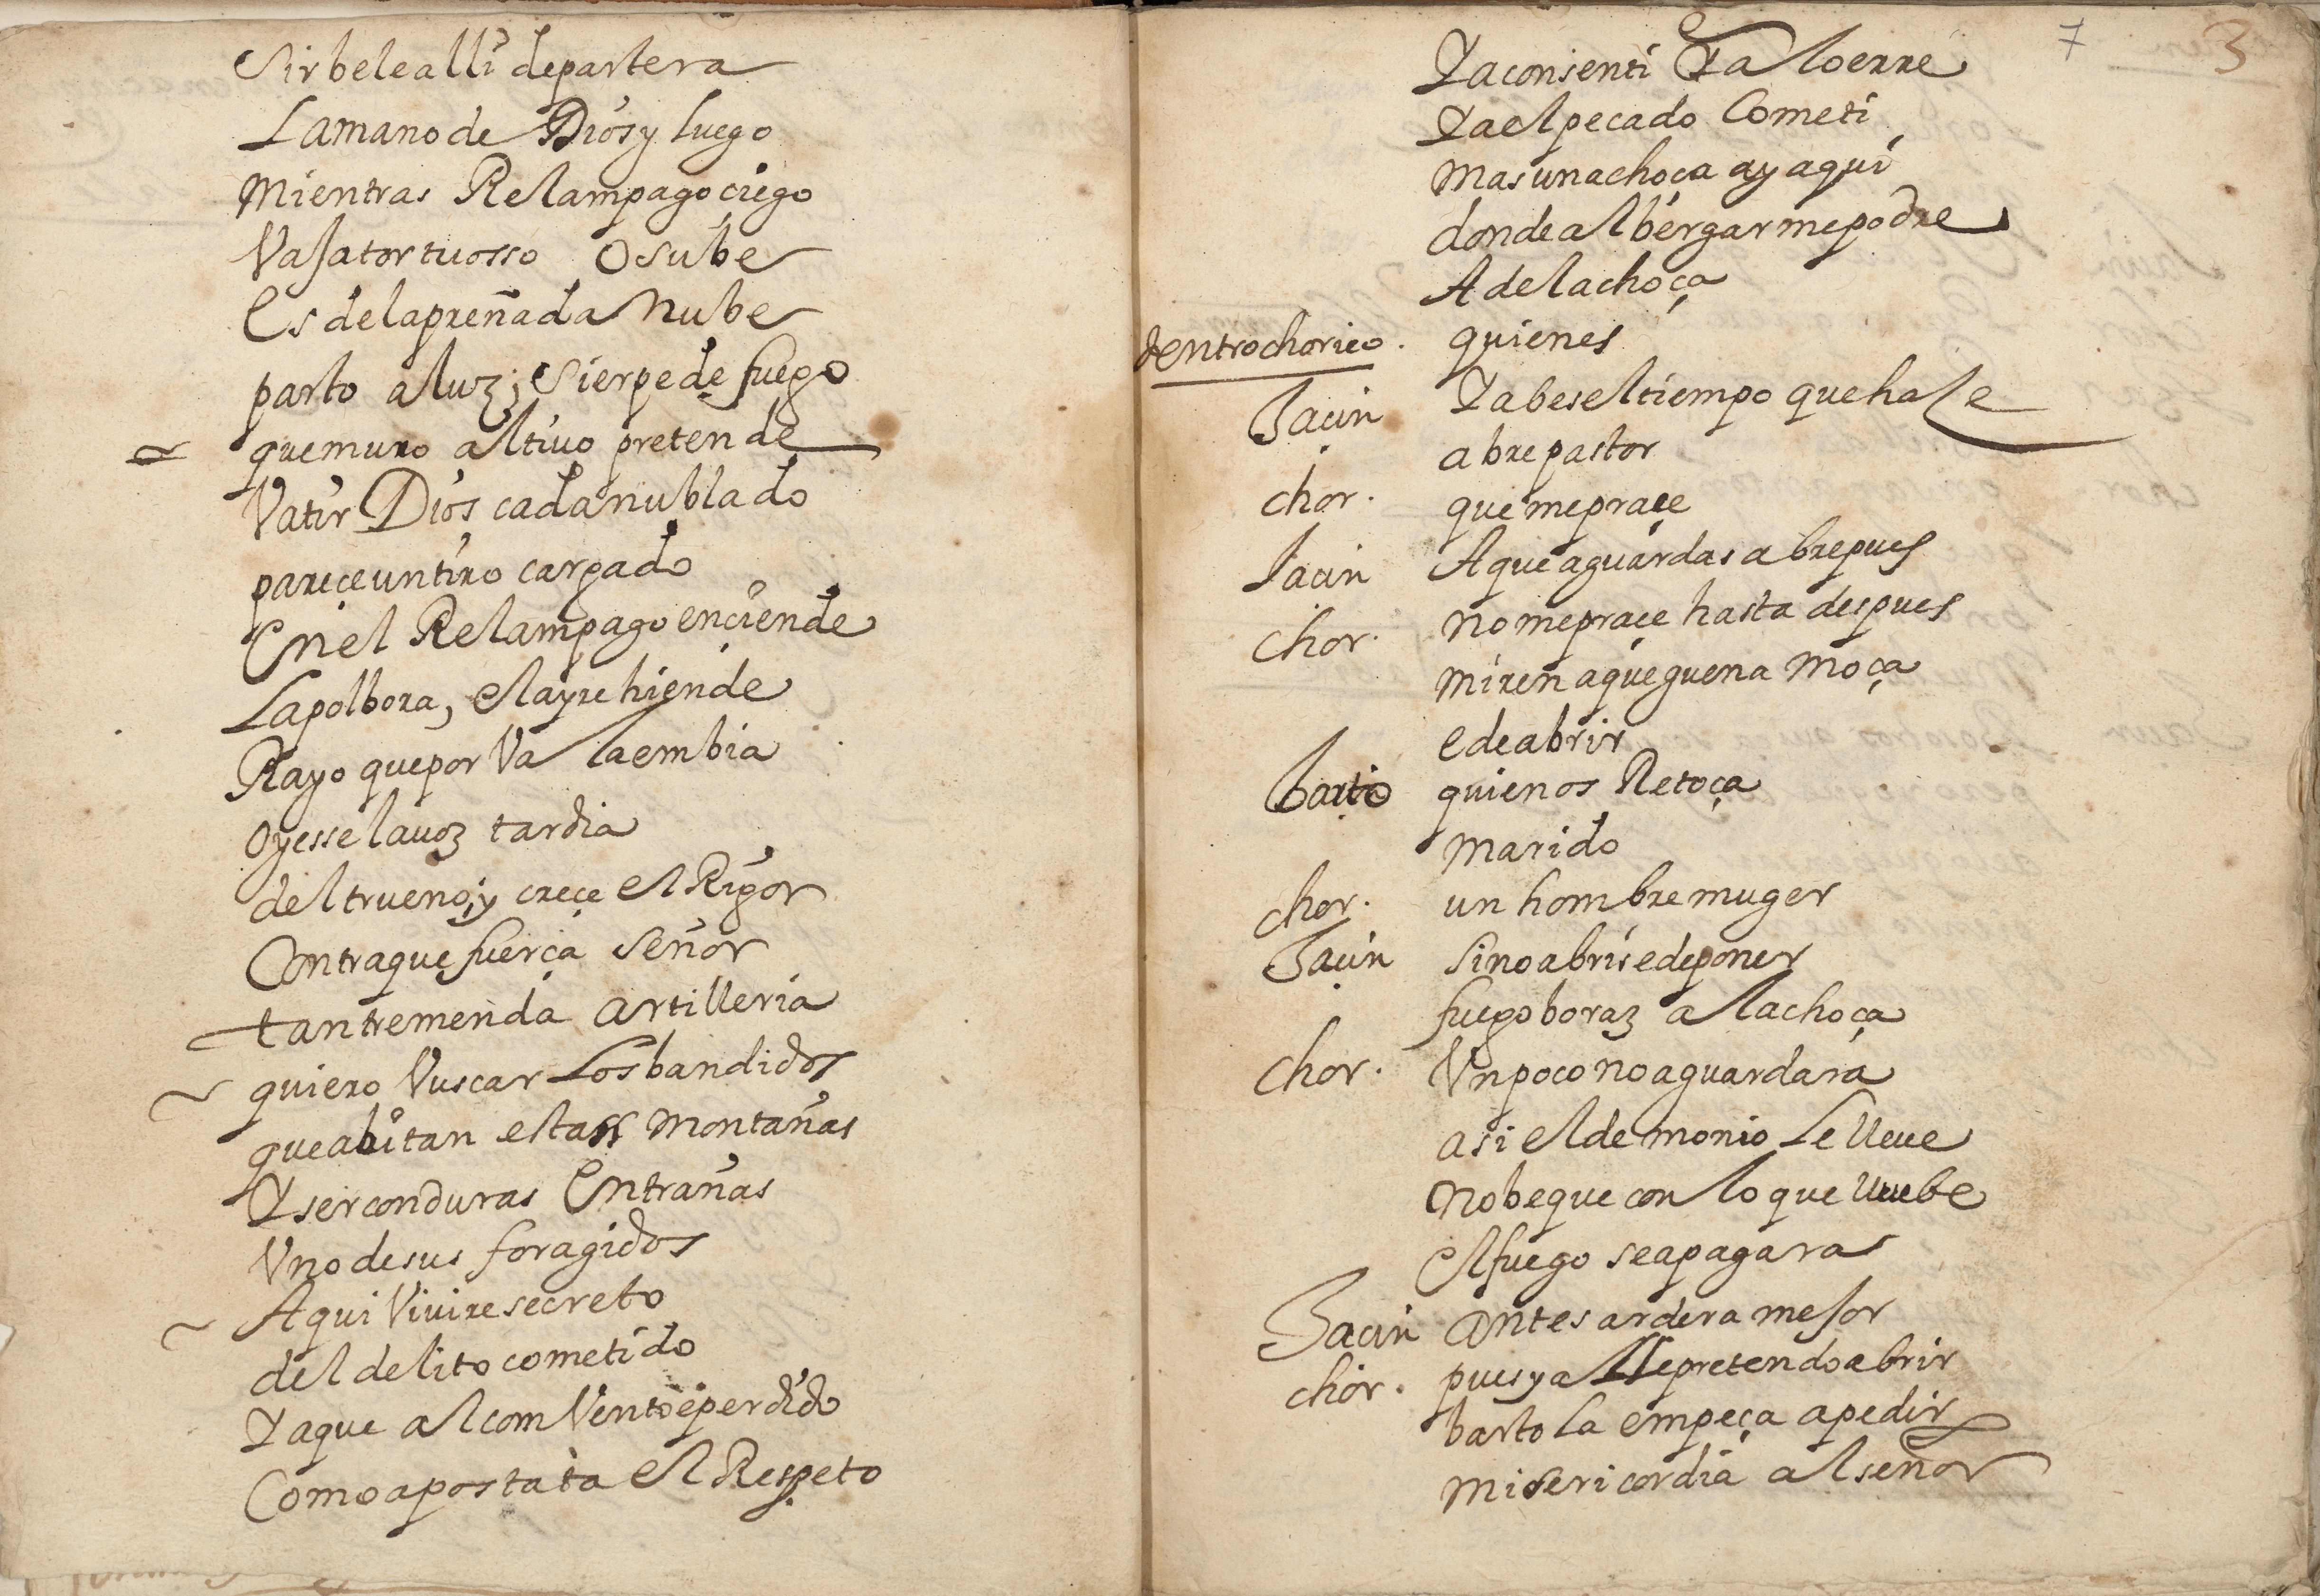 Sirbele alli de partera
La mano de Dios y luego
Mientras Relampago ciego
Vaja tortuosso o sube
Es de la preñada Nube
parto a luz; Sierpe de fuego
que muro altiuo pretende
Vatir Dios cada nublado
pareçe un tiro cargado
En el Relampago enciende
La polbora, el ayre hiende
Rayo que por Vala embia
oyesse la uoz tardia
del trueno, y creçe el Rigor
Contra que fuerça Señor
tan tremenda artilleria
quiero Vuscar Los bandidos
que abitan estas Montañas
Y ser con duras Entrañas
Vno de sus foragidos
Aqui Viuire secreto
del delito cometido
Ya que al comVento e perdido
Como apostata el Respeto
7 3
Ya consenti Ya lo erre
Ya el pecado Cometi
Mas una choça ay aqui
donde albergarme podre
A de la choça
dentro chorico. quien es
Jacin Ya bes el tiempo que haze
abre pastor
chor. que me praçe
Jacin A que aguardas abre pues
chor. no me praçe hasta despues
miren a que guena Moça
e de abrir
Barto quien os Retoça
Marido
chor. un hombre muger
Jacin Si no abris e de poner
fuego boraz a la choça
chor. Vn poco no aguardara
asi el demonio Le lleue
no be que con lo que lluebe
el fuego se apagara
Jacin antes ardera mejor
chor. pues ya lle pretendo abrir
bartola empeça a pedir
misericordia al señor